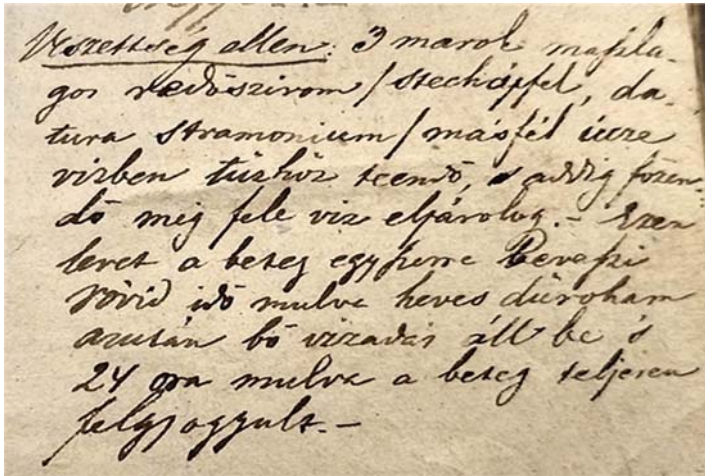 Veszettség ellen: 3 marok maszla-
gos redőszirom / stechäpfel, da-
tura stramonium / másfél iccze
vizben tűzhöz teendő, s addig főzen-
dő míg fele viz elpárolog. – Ezen
levet a beteg egyszerre beveszi
rövid idő mulva heves düroham
azután bő vizadás áll be s
24 óra mulva a beteg teljesen
felgyógyult. –